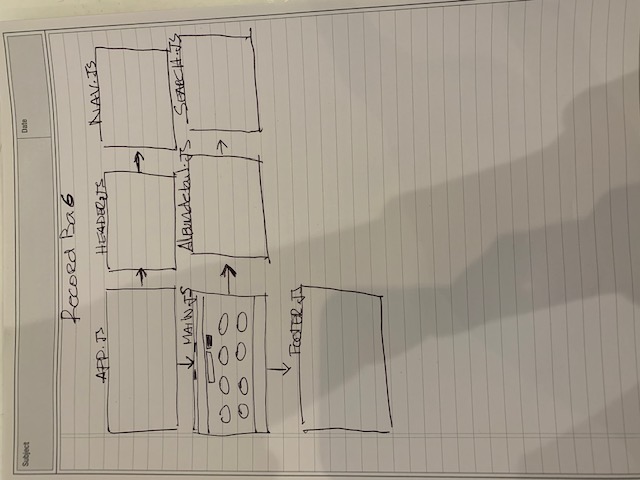 Subject
Date
Record Bag
APP.JS
HEADER.JS
NAV.JS
MAIN.JS
Albumdetail.JS
SEARCH.JS
FOOTER.JS